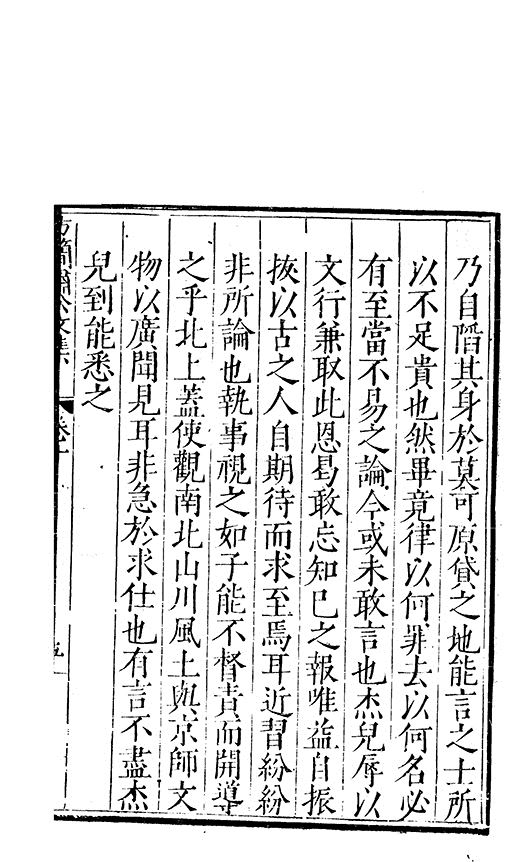 乃自蹈其身於莫可原貸之地能言之士所
以不足貴也然畢竟律以何罪去以何名必
有至當不易之論今或未敢言也杰兒辱以
文行兼取此恩曷敢忘知巳之報唯益自振
拔以古之人自期待而求至焉耳近習紛紛
非所論也執事視之如子能不督責而開導
之乎北上蓋使觀南北山川風土與京師文
物以廣聞見耳非急於求仕也有言不盡杰
兒到能悉之
方簡肅公文集
五